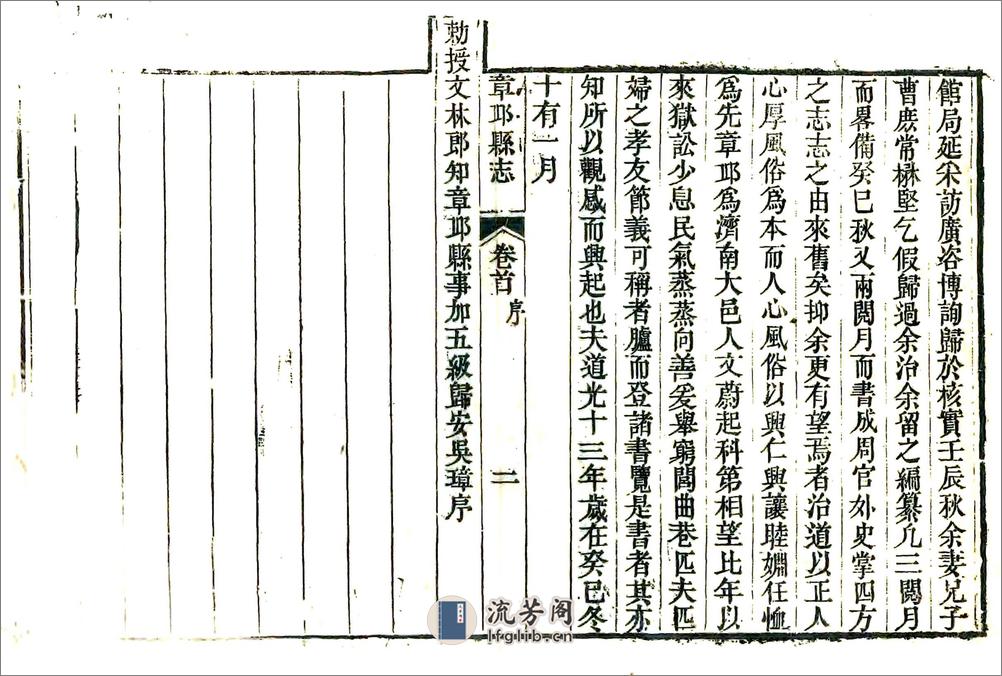 館局延采訪廣咨博詢歸於核實壬辰秋余妻兄子
曹庶常楙堅乞假歸過余治余留之編纂凡三閱月
而畧備癸巳秋又兩閱月而書成周官外史掌四方
之志志之由來舊矣抑余更有望焉者治道以正人
心厚風俗爲本而人心風俗以興仁興讓睦婣任恤
爲先章邱爲濟南大邑人文蔚起科第相望比年以
來獄訟少息民氣蒸蒸向善爰舉窮閭曲巷匹夫匹
婦之孝友節義可稱者臚而登諸書覽是書者其亦
知所以觀感而興起也夫道光十三年歲在癸巳冬
十有一月
章邱縣志 卷首 序 二
勅授文林郎知章邱縣事加五級歸安吳璋序
流芳阁
lfglib.cn